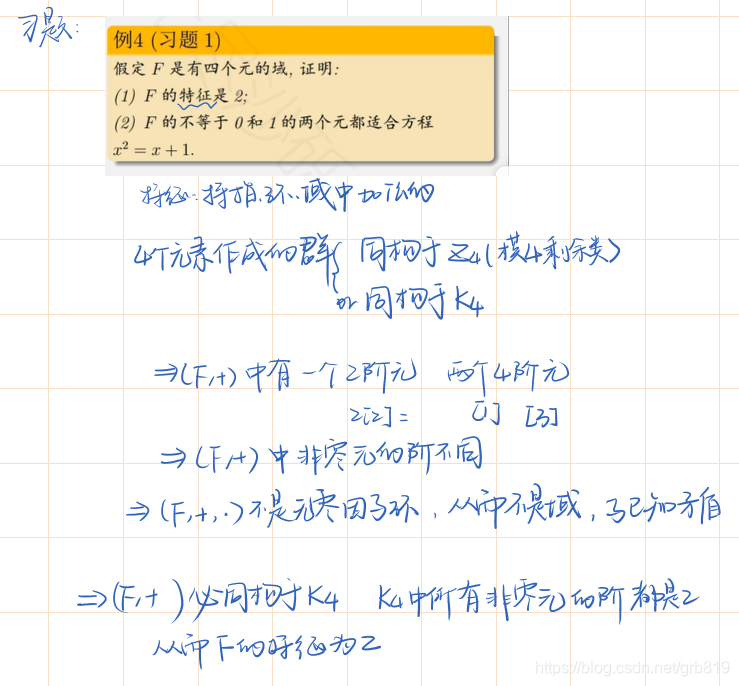 习题:
例4 (习题 1)
假定 F 是有四个元的域, 证明:
(1) F 的特征是 2;
(2) F 的不等于 0 和 1 的两个元都适合方程
x² = x + 1.
特征: 特指环、域中加法的
4个元素作成的群{ 同构于 Z₄(模4剩余类)
or 同构于 K₄
⇒(F,+) 中有一个2阶元 两个4阶元
2[2]= [1] [3]
⇒(F,+) 中非零元的阶不同
⇒(F,+,·)不是无零因子环, 从而不是域, 与已知矛盾
⇒(F,+) 必同构于K₄ K₄中所有非零元的阶都是2
从而F的特征为2
https://blog.csdn.net/grb819